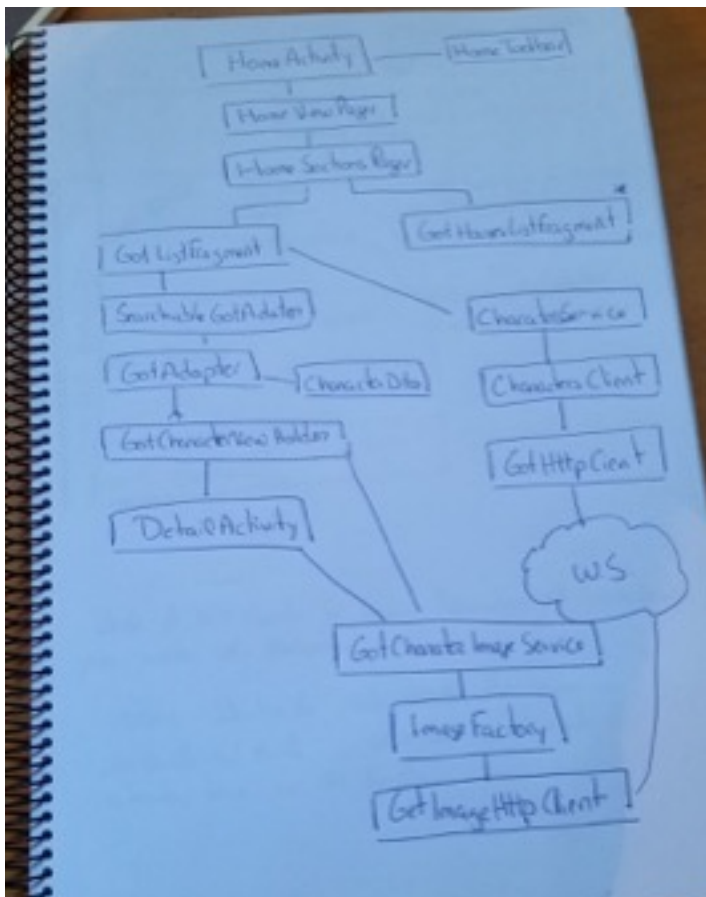 HomeActivity
Home Toolbar
Home View Pager
Home Sections Pager
Got ListFragment
Got HouseListFragment
*
Searchable GotAdater
CharaterService
GotAdapter
Character Data
Characters Client
GotCharacterView Holder
GotHttpCient
DetailActivity
WS
GotCharater Image Service
ImageFactory
GetImageHttpClient